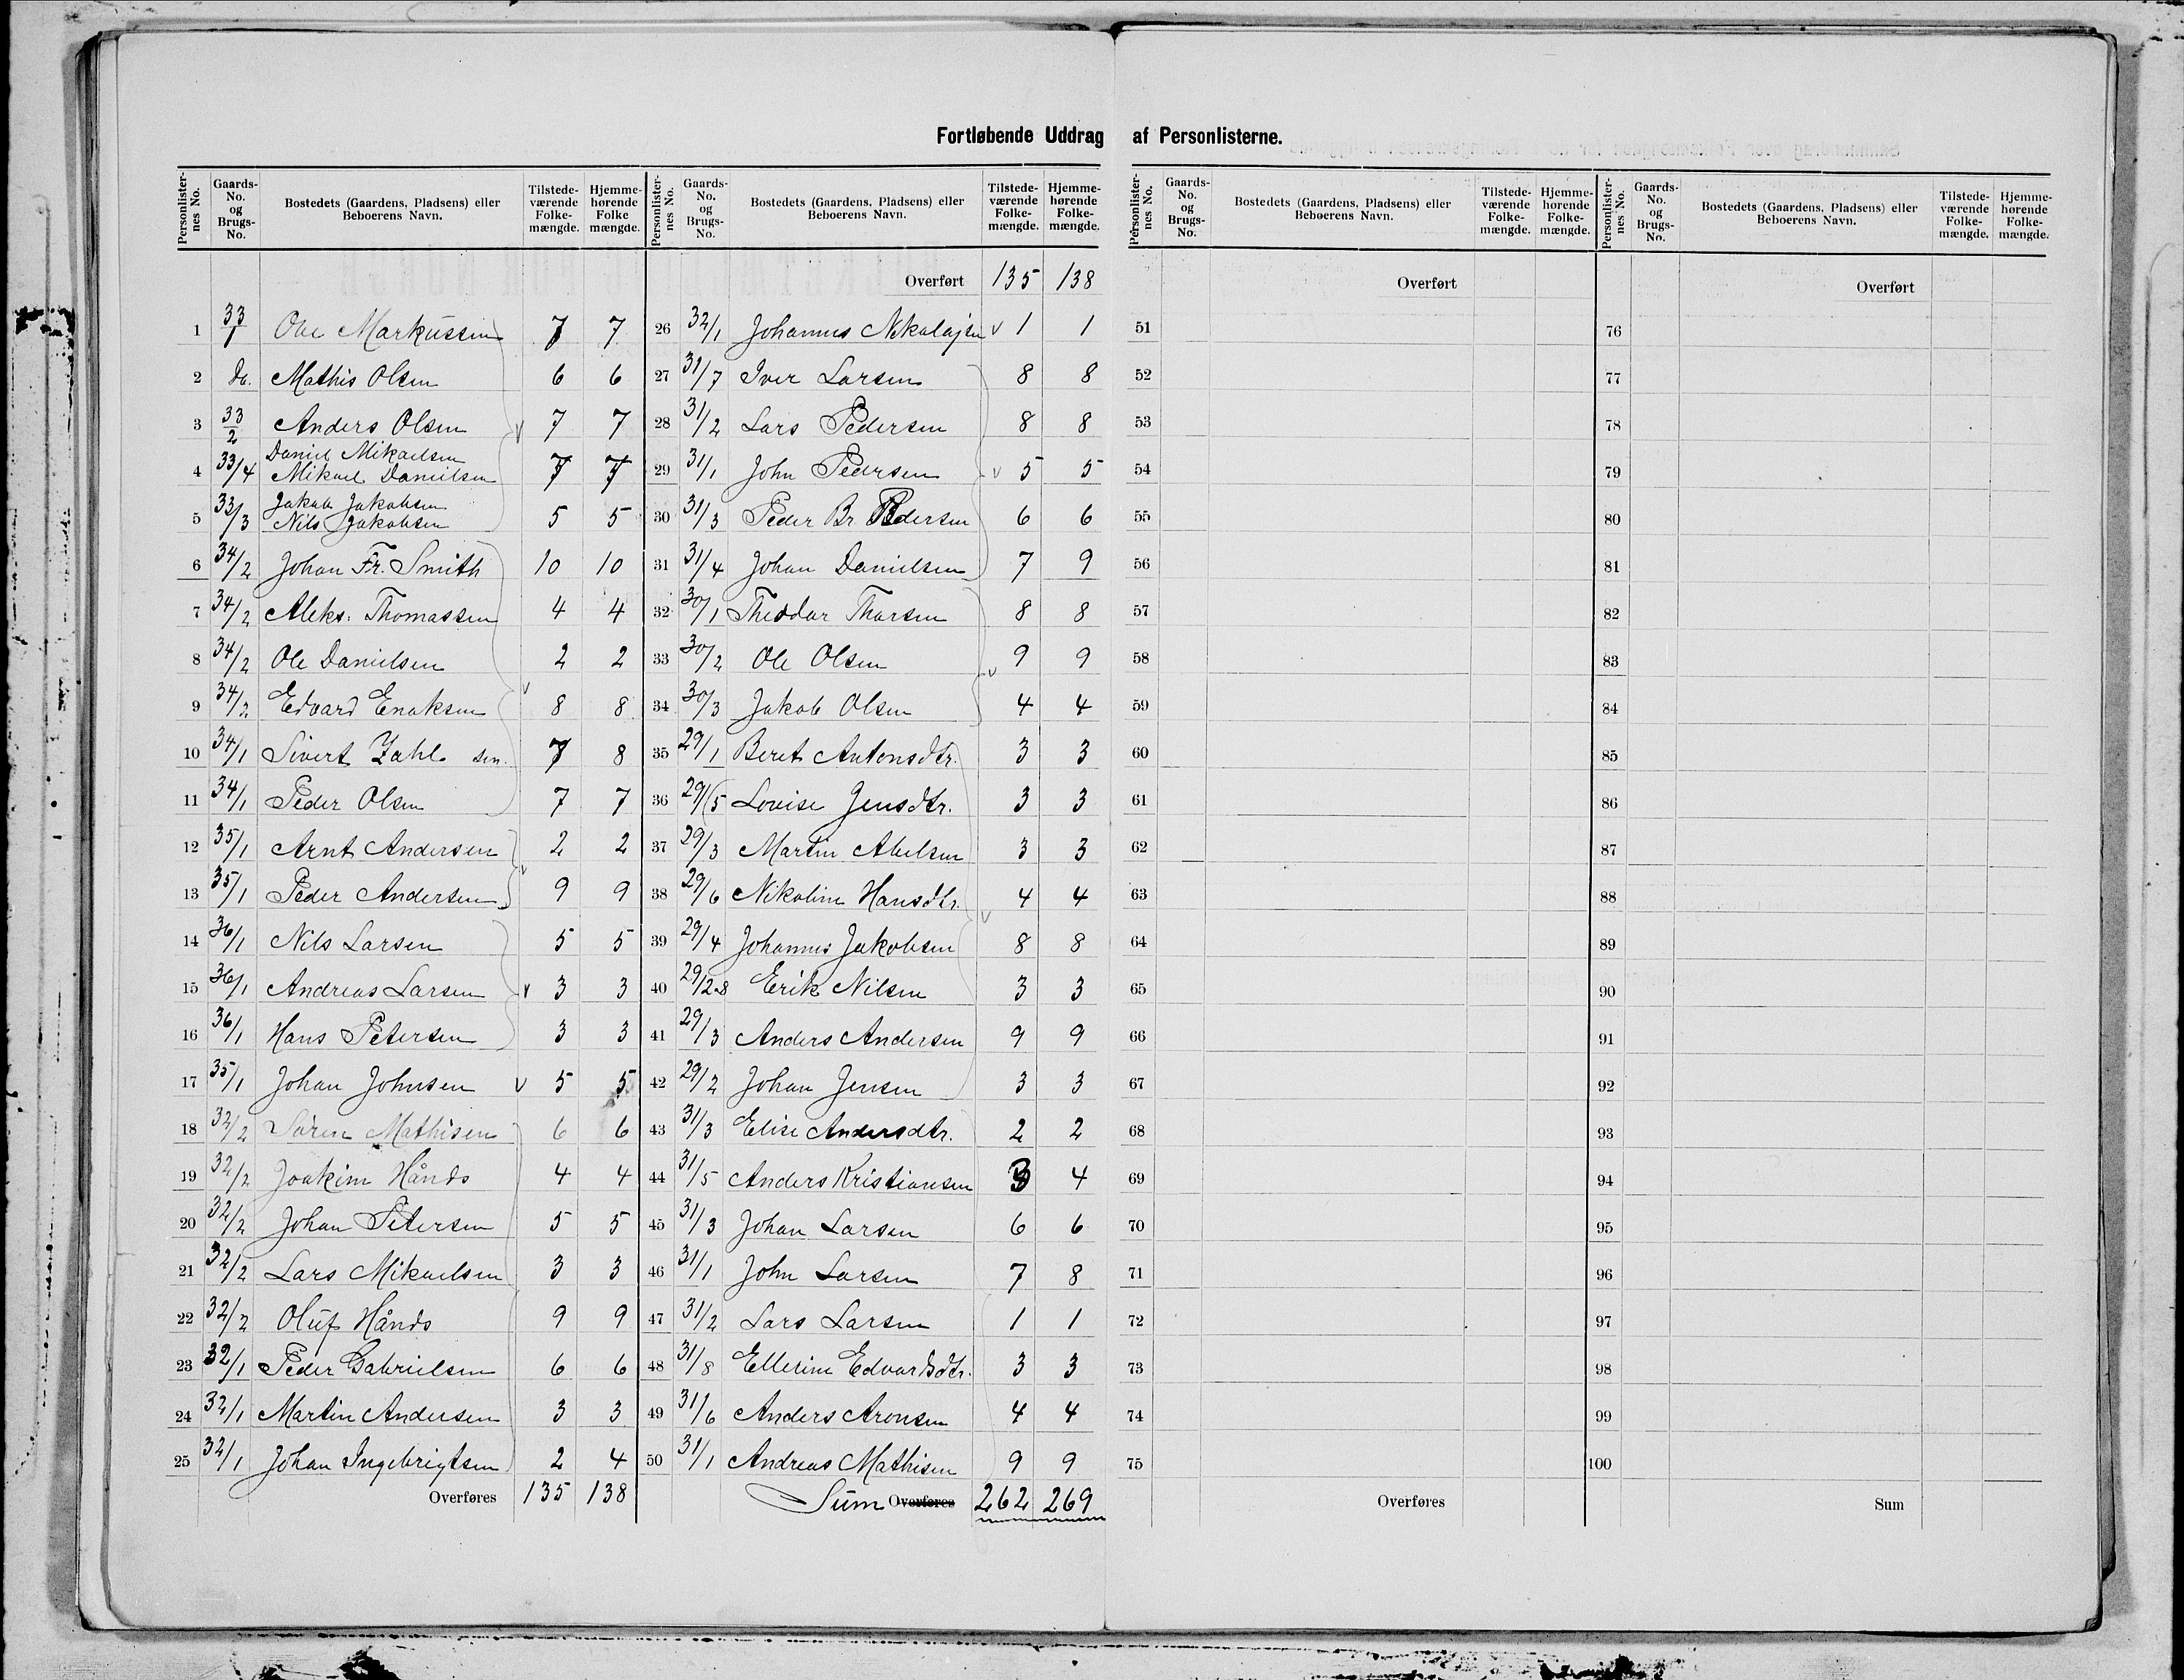 Fortløbende Uddrag af Personlisterne.
Personlisternes No. Gaards-No. og Brugs-No. Bostedets (Gaardens, Pladsens) eller Beboerens Navn. Tilstedeværende Folkemængde. Hjemmehørende Folkemængde.
1 33/1 Ole Markussen 7 7
2 do. Mathis Olsen 6 6
3 33/2 Anders Olsen 7 7
4 33/4 Daniel Mikaelsen
Mikael Danielsen 7 7
5 33/3 Jakob Jakobsen
Nils Jakobsen 5 5
6 34/2 Johan Fr. Smith 10 10
7 34/2 Aleks. Thomassen 4 4
8 34/2 Ole Danielsen 2 2
9 34/2 Edvard Enoksen 8 8
10 34/1 Sivert Zahl sen. 7 8
11 34/1 Peder Olsen 7 7
12 35/1 Arnt Andersen 2 2
13 35/1 Peder Andersen 9 9
14 36/1 Nils Larsen 5 5
15 36/1 Andreas Larsen 3 3
16 36/1 Hans Petersen 3 3
17 35/1 Johan Johnsen 5 5
18 32/2 Sören Mathisen 6 6
19 32/2 Joakim Hånds 4 4
20 32/2 Johan Petersen 5 5
21 32/2 Lars Mikaelsen 3 3
22 32/2 Oluf Hånds 9 9
23 32/1 Peder Gabrielsen 6 6
24 32/1 Martin Andersen 3 3
25 32/1 Johan Ingebrigtsen 2 4
Overføres 135 138
Personlisternes No. Gaards-No. og Brugs-No. Bostedets (Gaardens, Pladsens) eller Beboerens Navn. Tilstedeværende Folkemængde. Hjemmehørende Folkemængde.
Overført 135 138
26 32/1 Johannes Nikolajsen 1 1
27 31/7 Iver Larsen 8 8
28 31/2 Lars Pedersen 8 8
29 31/1 John Pedersen 5 5
30 31/3 Peder Br. Pedersen 6 6
31 31/4 Johan Danielsen 7 9
32 30/1 Theodor Thorsen 8 8
33 30/2 Ole Olsen 9 9
34 30/3 Jakob Olsen 4 4
35 29/1 Beret Antonsdtr. 3 3
36 29/5 Lovise Jensdtr. 3 3
37 29/3 Martin Abelsen 3 3
38 29/6 Nikoline Hansdtr. 4 4
39 29/4 Johannes Jakobsen 8 8
40 29/2-8 Erik Nilsen 3 3
41 29/3 Anders Andersen 9 9
42 29/2 Johan Jensen 3 3
43 31/3 Elise Andersdtr. 2 2
44 31/5 Anders Kristiansen 3 4
45 31/3 Johan Larsen 6 6
46 31/1 John Larsen 7 8
47 31/2 Lars Larsen 1 1
48 31/8 Ellerine Edvardsdtr. 3 3
49 31/6 Anders Aronsen 4 4
50 31/1 Andreas Mathisen 9 9
Sum Overføres 262 269
Personlisternes No. Gaards-No. og Brugs-No. Bostedets (Gaardens, Pladsens) eller Beboerens Navn. Tilstedeværende Folkemængde. Hjemmehørende Folkemængde.
Overført
51
52
53
54
55
56
57
58
59
60
61
62
63
64
65
66
67
68
69
70
71
72
73
74
75
Overføres
Personlisternes No. Gaards-No. og Brugs-No. Bostedets (Gaardens, Pladsens) eller Beboerens Navn. Tilstedeværende Folkemængde. Hjemmehørende Folkemængde.
Overført
76
77
78
79
80
81
82
83
84
85
86
87
88
89
90
91
92
93
94
95
96
97
98
99
100
Sum